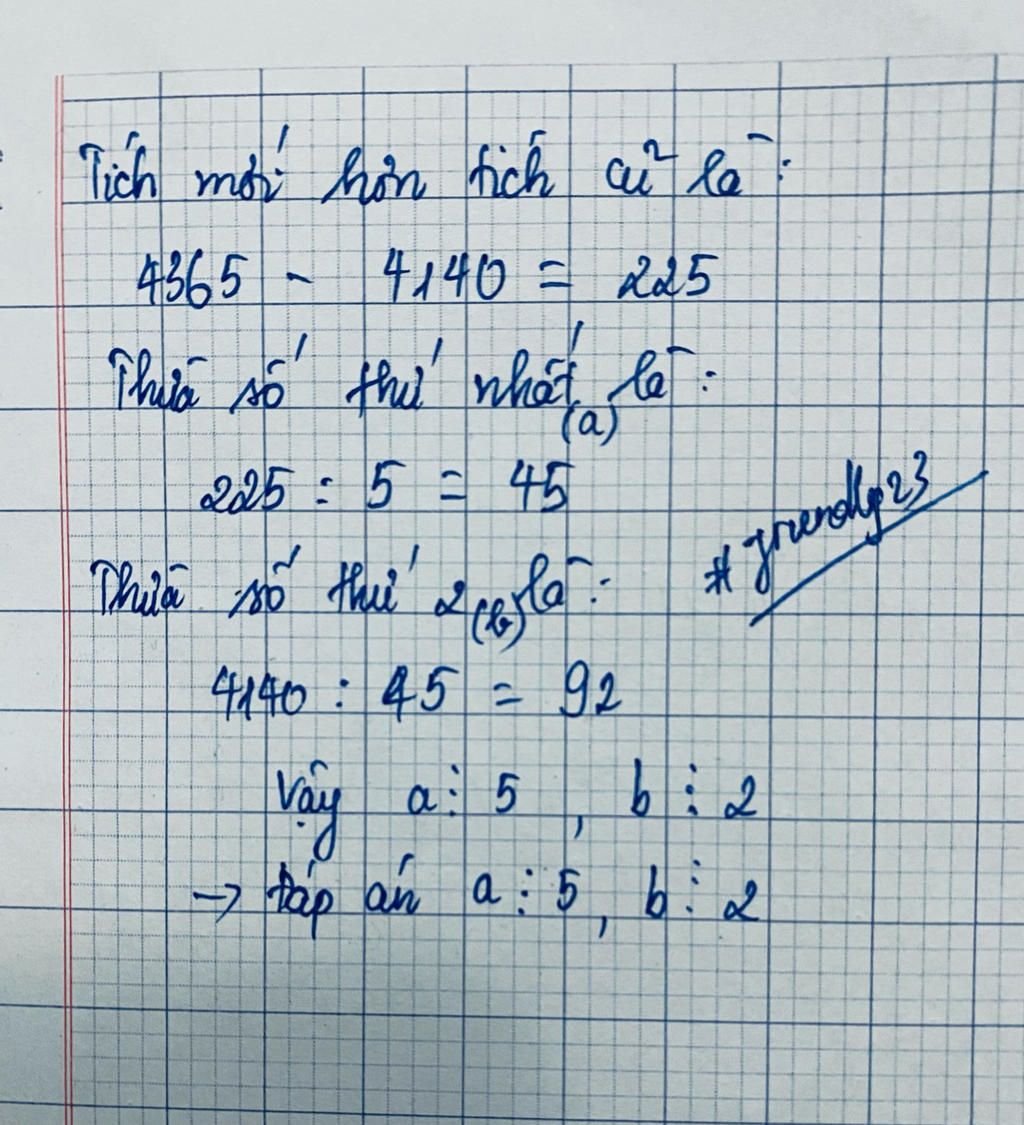 Tích mới hơn tích cũ là:
4365 - 4140 = 225
Thừa số thứ nhất (a) là:
225 : 5 = 45
# friendly23
Thừa số thứ 2 (b) là:
4140 : 45 = 92
Vậy a ⋮ 5 , b ⋮ 2
→ Đáp án a ⋮ 5, b ⋮ 2